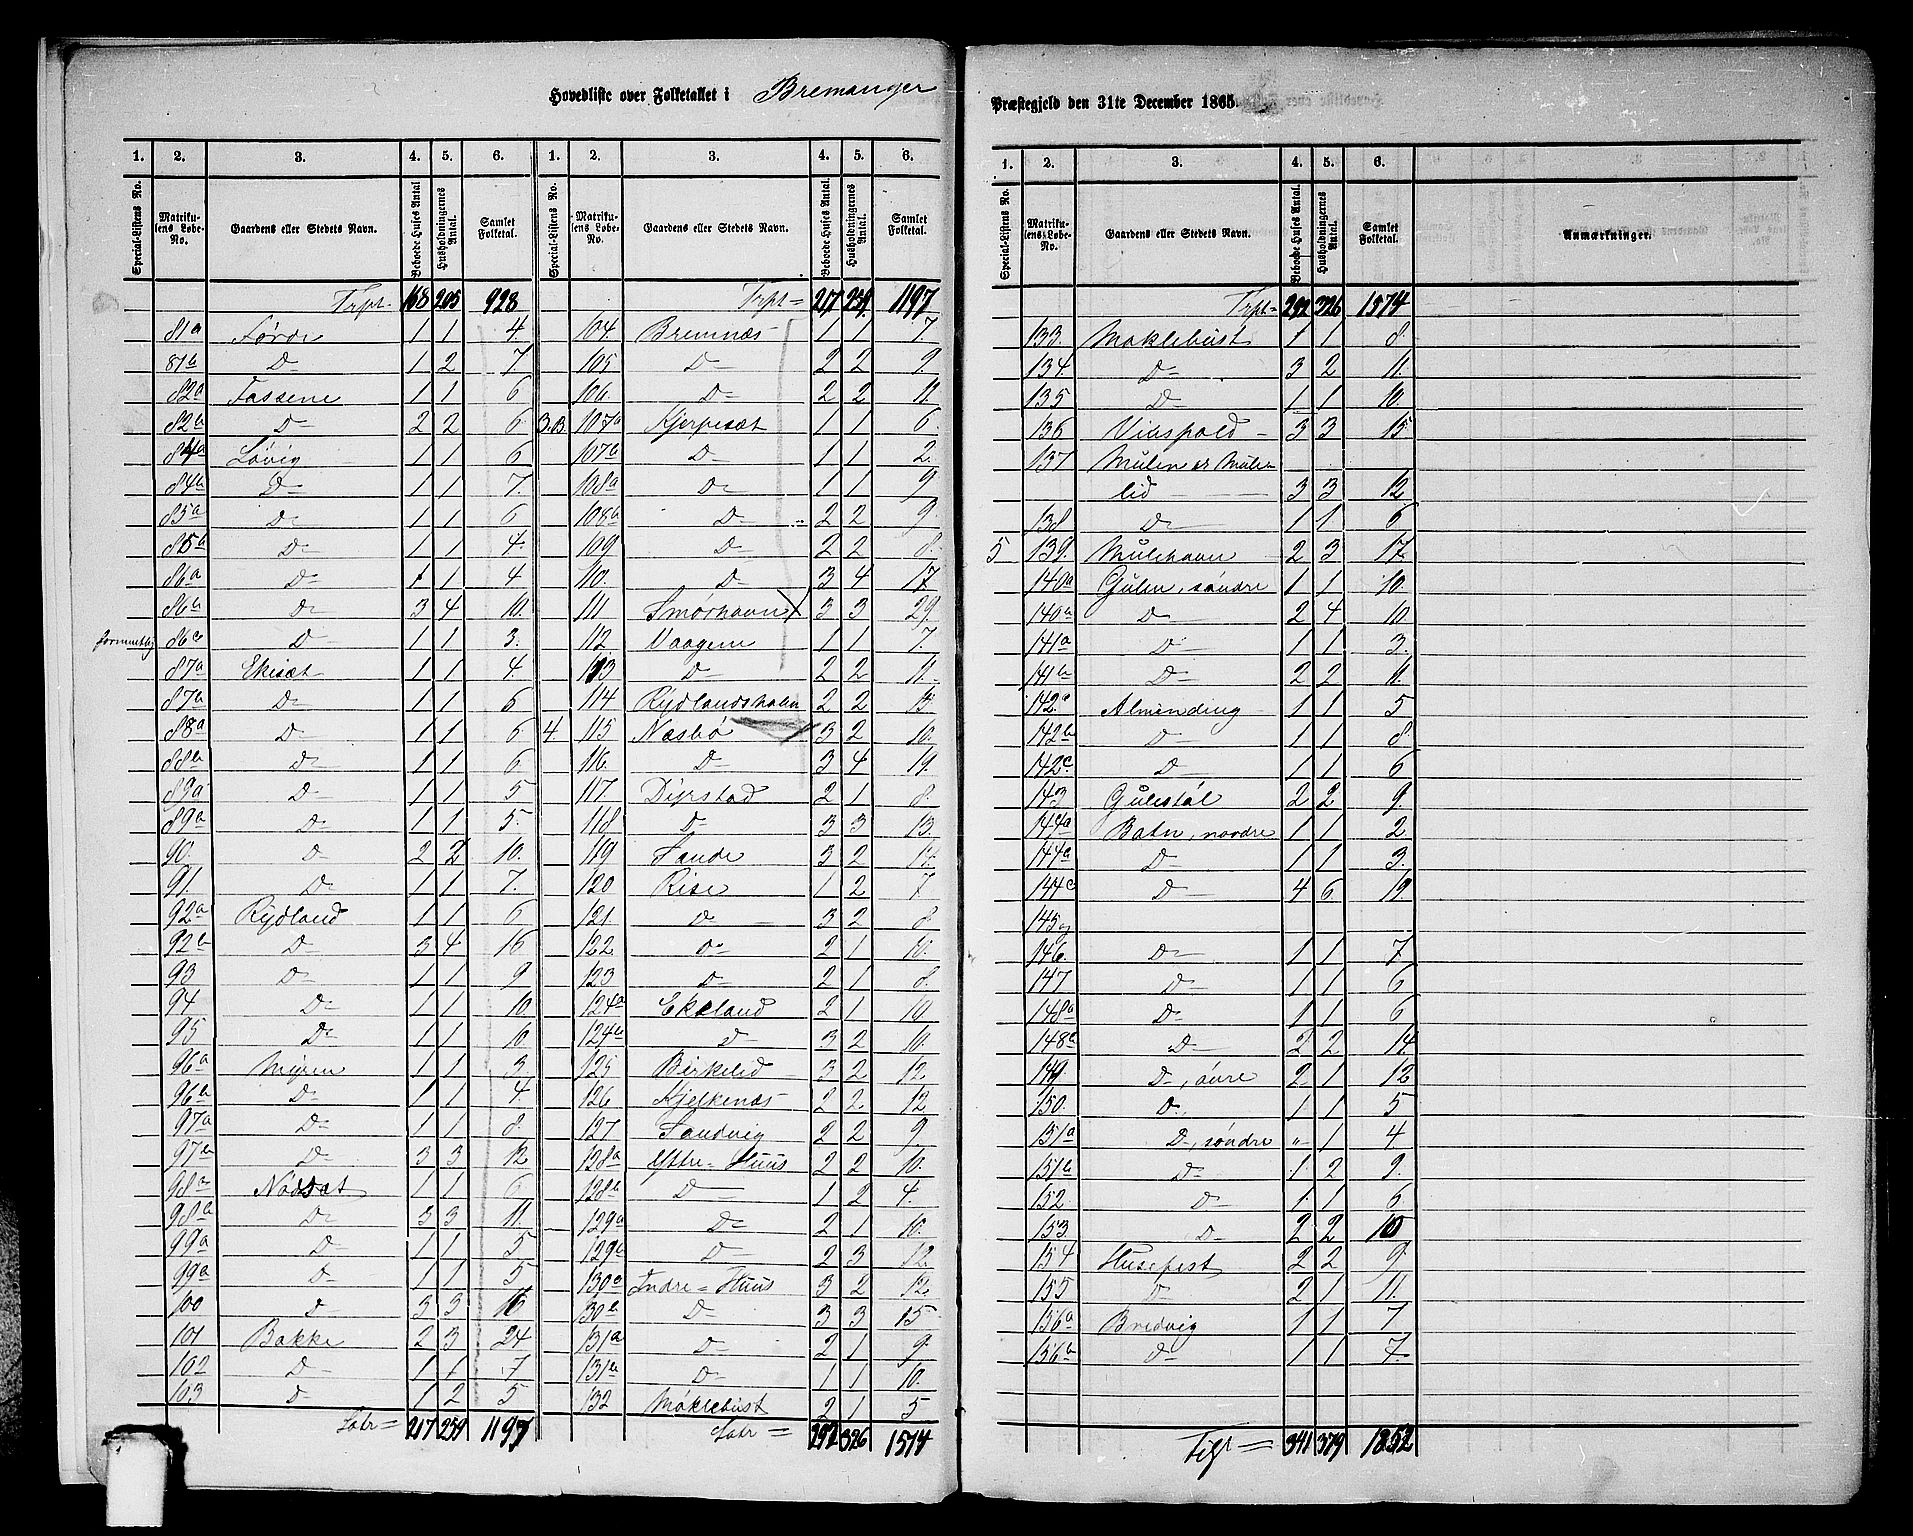 Hovedliste over Folketallet i Bremanger
1. 2. 3. 4. 5. 6. 1. 2. 3. 4. 5. 6.
Special-Listens No. Matrikulens Løbe-No. Gaardens eller Stedets Navn. Beboede Huses Antal Husholdningernes Antal. Samlet Folketal. Special-Listens No. Matrikulens Løbe-No. Gaardens eller Stedets Navn. Beboede Huses Antal. Husholdningernes Antal. Samlet Folketal.
Trpt. 168 205 928 Trpt= 217 259 1197
81a Førde 1 1 4. 104. Bremnæs 1 1 7.
81b D- 1 2 7. 105 D- 2 2 9.
82a Fassene 1 1 6 106. D- 2 2 11.
82b D- 2 2 6. 3.B 107a Kjerpesæt 1 1 6.
84a Løvig 1 1 6 107b D- 1 1 2.
84b D- 1 1 7. 108a D- 1 1 9.
85a D- 1 1 6 108b D- 2 2 9.
85b D- 1 1 4. 109 D- 2 2 8.
86a D- 1 1 4 110. D- 3 4 17
86b D- 3 4 10. 111 Smørhavn 3 3 29.
86c D- 1 1 3. 112 Vaagene 1 1 7.
87a Ekisæt 1 1 4. 113 D- 2 2 11.
87b D- 1 1 6 114 Rydlandsholm 2 2
88a D- 1 1 6 4. 115 Næsbø 3 2 10.
88b D- 1 1 6 116 D- 3 4 19.
89a D- 1 1 5 117 Dyrstad 2 1 8.
89b D- 1 1 5. 118 D- 3 3 13.
90. D- 2 2 10. 119 Sande 3 2
91 D- 1 1 7. 120 Rise 1 2 7
92a Rydland 1 1 6 121. D- 3 2 8.
92b D- 3 4 16 122 D- 2 1 10.
93 D- 1 1 9 123 D- 2 1 8.
94 D- 1 1 10 124a Ekeland 2 1
95 D- 1 1 10 124b D- 3 2 10.
96a Myren 1 1 3 125 Birkelid 3 2 12.
96b D- 1 1 4. 126 Kjelkenæs 2 2 12
97a D- 1 1 8. 127 Sandvig 2 2 9
97b D- 3 3 12 128a Yttre-Huus 2 2 10.
98a Nødsæt 1 1 6 128b D- 1 2 4.
98b D- 3 3 11. 129a D- 2 1 10.
99a D- 1 1 5 129b D- 2 3 12.
99b D- 1 1 5 130a Indre=Huus 3 2 12.
100 D- 3 3 16 130b D- 3 3 15
101 Bakke 2 3 24 131a D- 2 1 9.
102 D- 1 1 7 131b D- 1 1 10.
103 D- 1 2 5 132 Møklebust 2 1 5
Latr= 217 259 1197 Latr= 292 326 1574
Præstegjeld den 31te December 1865.
1. 2. 3. 4. 5. 6.
Special-Listens No. Matrikulens Løbe-No. Gaardens eller Stedets Navn. Beboede Huses Antal. Husholdningernes Antal. Samlet Folketal. Anmærkninger.
Trpt= 292 326 1574
133. Maklebust 1 1 8.
134. D- 3 2 11.
135 D- 1 1 10.
136 Vinspold 3 3 15.
137 Mulen & Mule-
lid 3 3 12
138 D- 1 1 6
5 139. Mulehavn 2 3 17.
140a Gulen, søndre 1 1 10.
140b D- 2 4 10.
141a D- 1 1 3.
141b D- 2 2 11.
142a Alminding 1 1 5
142b D- 1 1 8
142c D- 1 1 6
143 Gulestøl 2 2 9.
144a Botn, nordre 1 1 2.
144b D- 1 1 3.
144c D- 4 6. 19.
145 og
146. D- 1 1 7
147 D- 1 1 6
148a D- 1 1 6
148b D- 2 2 14.
149. D-, øvre 2 1 12
150. D. 1 1 5
151a D-, søndre " 1 4
151b D- 1 2 9.
152 D- 1 1 6.
153. D- 2 2 10
154 Husefest 2 2 9.
155 D- 2 1 11.
156a Bredvig 1 1 7
156b D- 1 1 7.
Tilst= 341 379 1852